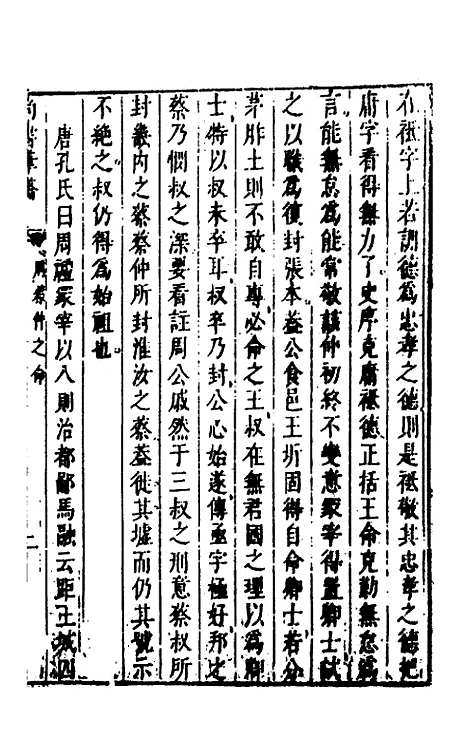 在祗字上若訓德為忠孝之德則是祗敬其忠孝之德把
庸字看得無力了史序克庸祗德正括王命克勤無怠為
言能無怠為能常敬該仲初終不變意冡宰得置卿士試
之以職為復封張本蓋公食邑王圻固得自命卿士若分
茅胙土則不敢自專必命之王叔在無君國之理以為卿
士特以叔未卒耳叔卒乃封公心始遂傳亟字極好邦之
蔡乃憫叔之深要看註周公戚然于三叔之刑意蔡叔所
封畿内之蔡蔡仲所封淮汝之蔡蓋徙其墟而仍其號示
不絶之叔仍得為始祖也
唐孔氏曰周禮冡宰以八則治都鄙馬融云距王城四
尚書 蔡仲之命 二